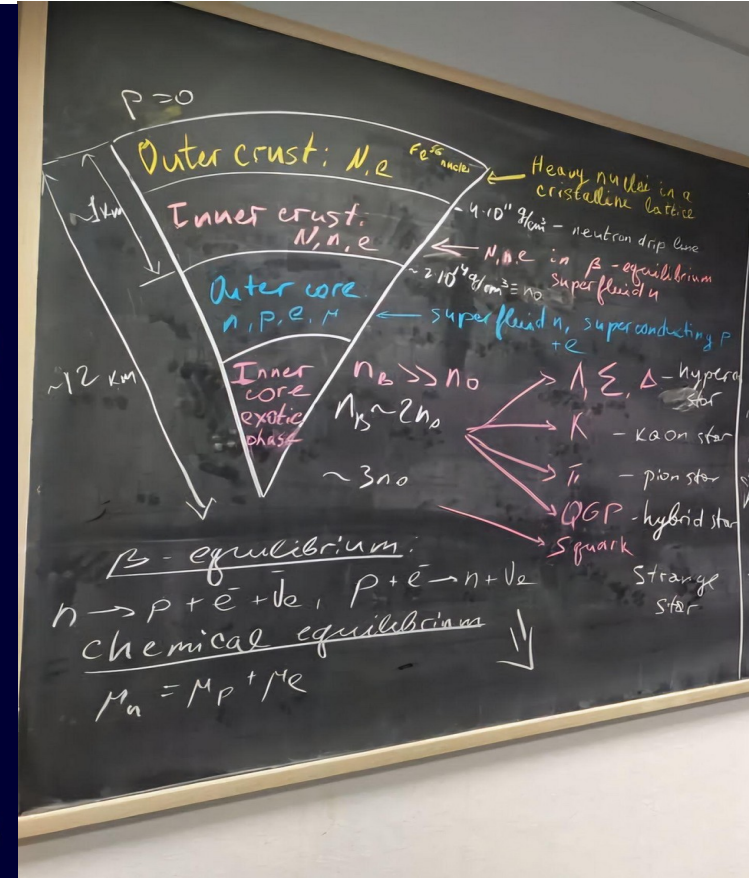 P=0
Outer crust: N,e Fe⁵⁶ nuclei
Heavy nuclei in a
cristalline lattice
~4·10¹¹ g/cm³ - neutron drip line
~1 km
Inner crust:
N, n, e
N,n,e in β-equilibrium
superfluid n
~2·10¹⁴ g/cm³ ≡ n₀
Outer core
n, p, e, μ
superfluid n, superconducting p
+e
~12 km
Inner
core
exotic
phase
n_B >> n₀
n_B ~ 2n₀
~3n₀
Λ, Σ, Δ - hyperon
star
K - kaon star
π - pion star
QGP - hybrid star
Squark
Strange
star
β-equilibrium:
n → p + e⁻ + ν̄e, p + e⁻ → n + νe
chemical equilibrium
μn = μp + μe